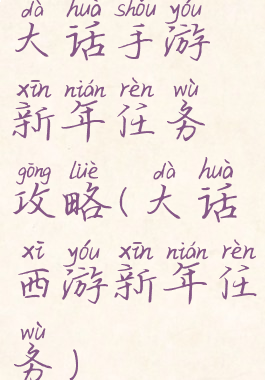 dà huà shǒu yóu
大话手游
xīn nián rèn wù
新年任务
gōng lüè dà huà
攻略(大话
xī yóu xīn nián rèn
西游新年任
wù
务)